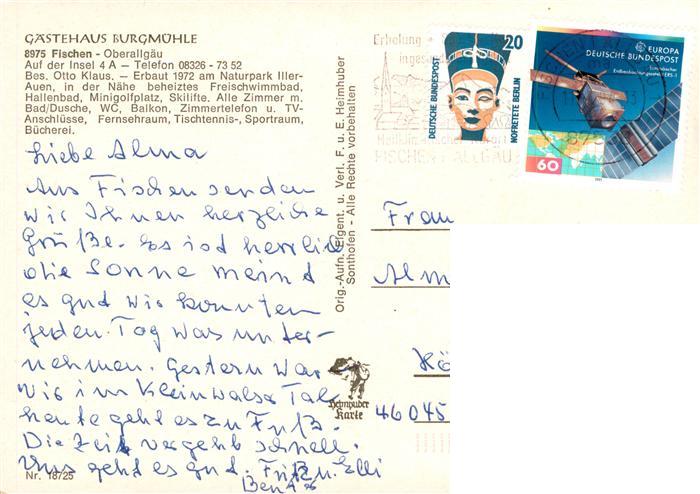 GÄSTEHAUS BURGMÜHLE
8975 Fischen - Oberallgäu
Auf der Insel 4 A – Telefon 08326 - 73 52
Bes. Otto Klaus. – Erbaut 1972 am Naturpark Iller-
Auen, in der Nähe beheiztes Freischwimmbad,
Hallenbad, Minigolfplatz, Skilifte. Alle Zimmer m.
Bad/Dusche, WC, Balkon, Zimmertelefon u. TV-
Anschlüsse, Fernsehraum, Tischtennis-, Sportraum,
Bücherei.
Liebe Alma
Aus Fischen senden
wir Ihnen herzliche
Grüße. Es ist herrlich
die Sonne meint
es gut wir konnten
jeden Tag was unter-
nehmen. Gestern war
wir im Kleinwalser Tal
heute geht es zu Fuß.
Die Zeit vergeht schnell.
Uns geht es gut. Fritz u. Elli
Nr. 18/25
Orig.-Aufn. Eigent. u. Verl. F. u. E. Heimhuber
Sonthofen - Alle Rechte vorbehalten
Heimhuber
Karte
Erholung
FISCHEN I. ALLGÄU
DEUTSCHE BUNDESPOST
20
NOFRETETE BERLIN
EUROPA
DEUTSCHE BUNDESPOST
Europäischer
Erdbeobachtungssatellit ERS-1
60
Frau
Alm
Kö
46045